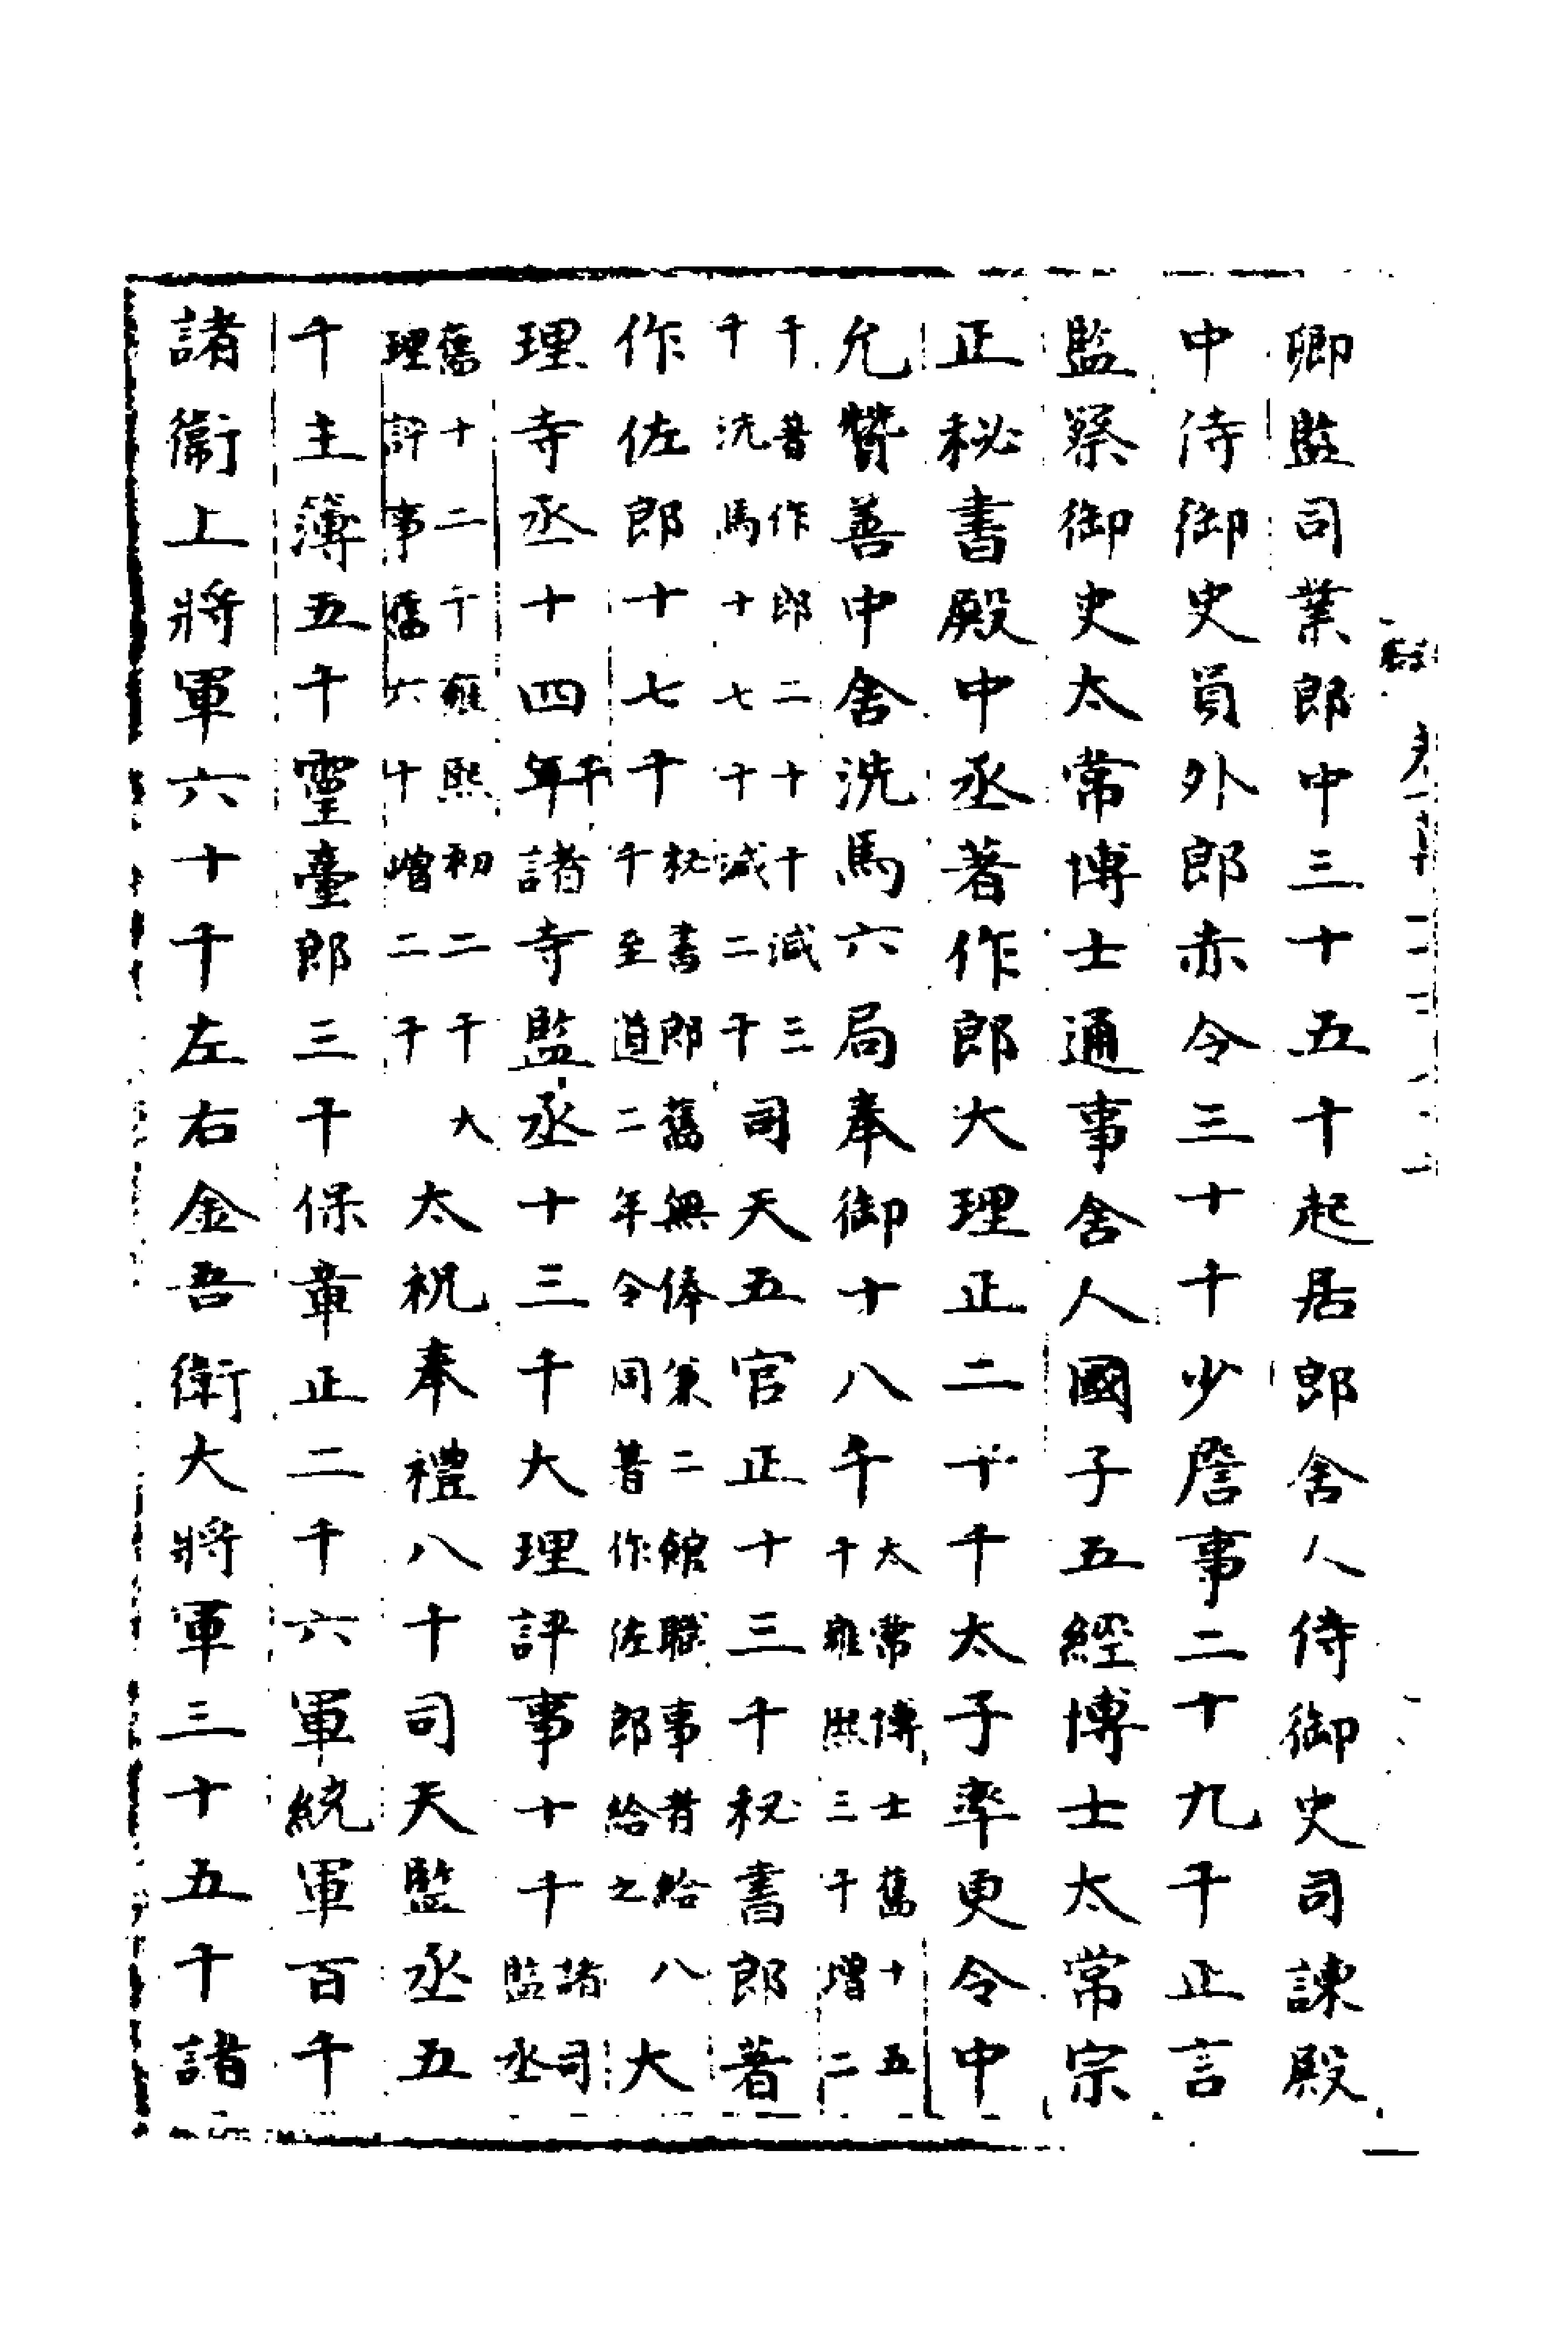 卿監司業郎中三十五千起居郎舍人侍御史司諫殿
中侍御史員外郎赤令三十千少詹事二十九千正言
監察御史太常博士通事舍人國子五經博士太常宗
正秘書殿中丞著作郎大理正二十千太子率更令中
允贊善中舍洗馬六局奉御十八千太常博士舊十五千雍熙三千增二
千著作郎二十千減三千洗馬十七千減二千司天五官正十三千秘書郎著
作佐郎十七千秘書郎舊無俸兼二館職事者給八千至道二年令同著作佐郎給之大
理寺丞十四年千諸寺監丞十三千大理評事十千諸司監丞
舊十二千雍熙初二千大理評事舊六十增二千太祝奉禮八千司天監丞五
千主簿五千靈臺郎三千保章正二千六軍統軍百千
諸衞上將軍六十千左右金吾衛大將軍三十五千諸